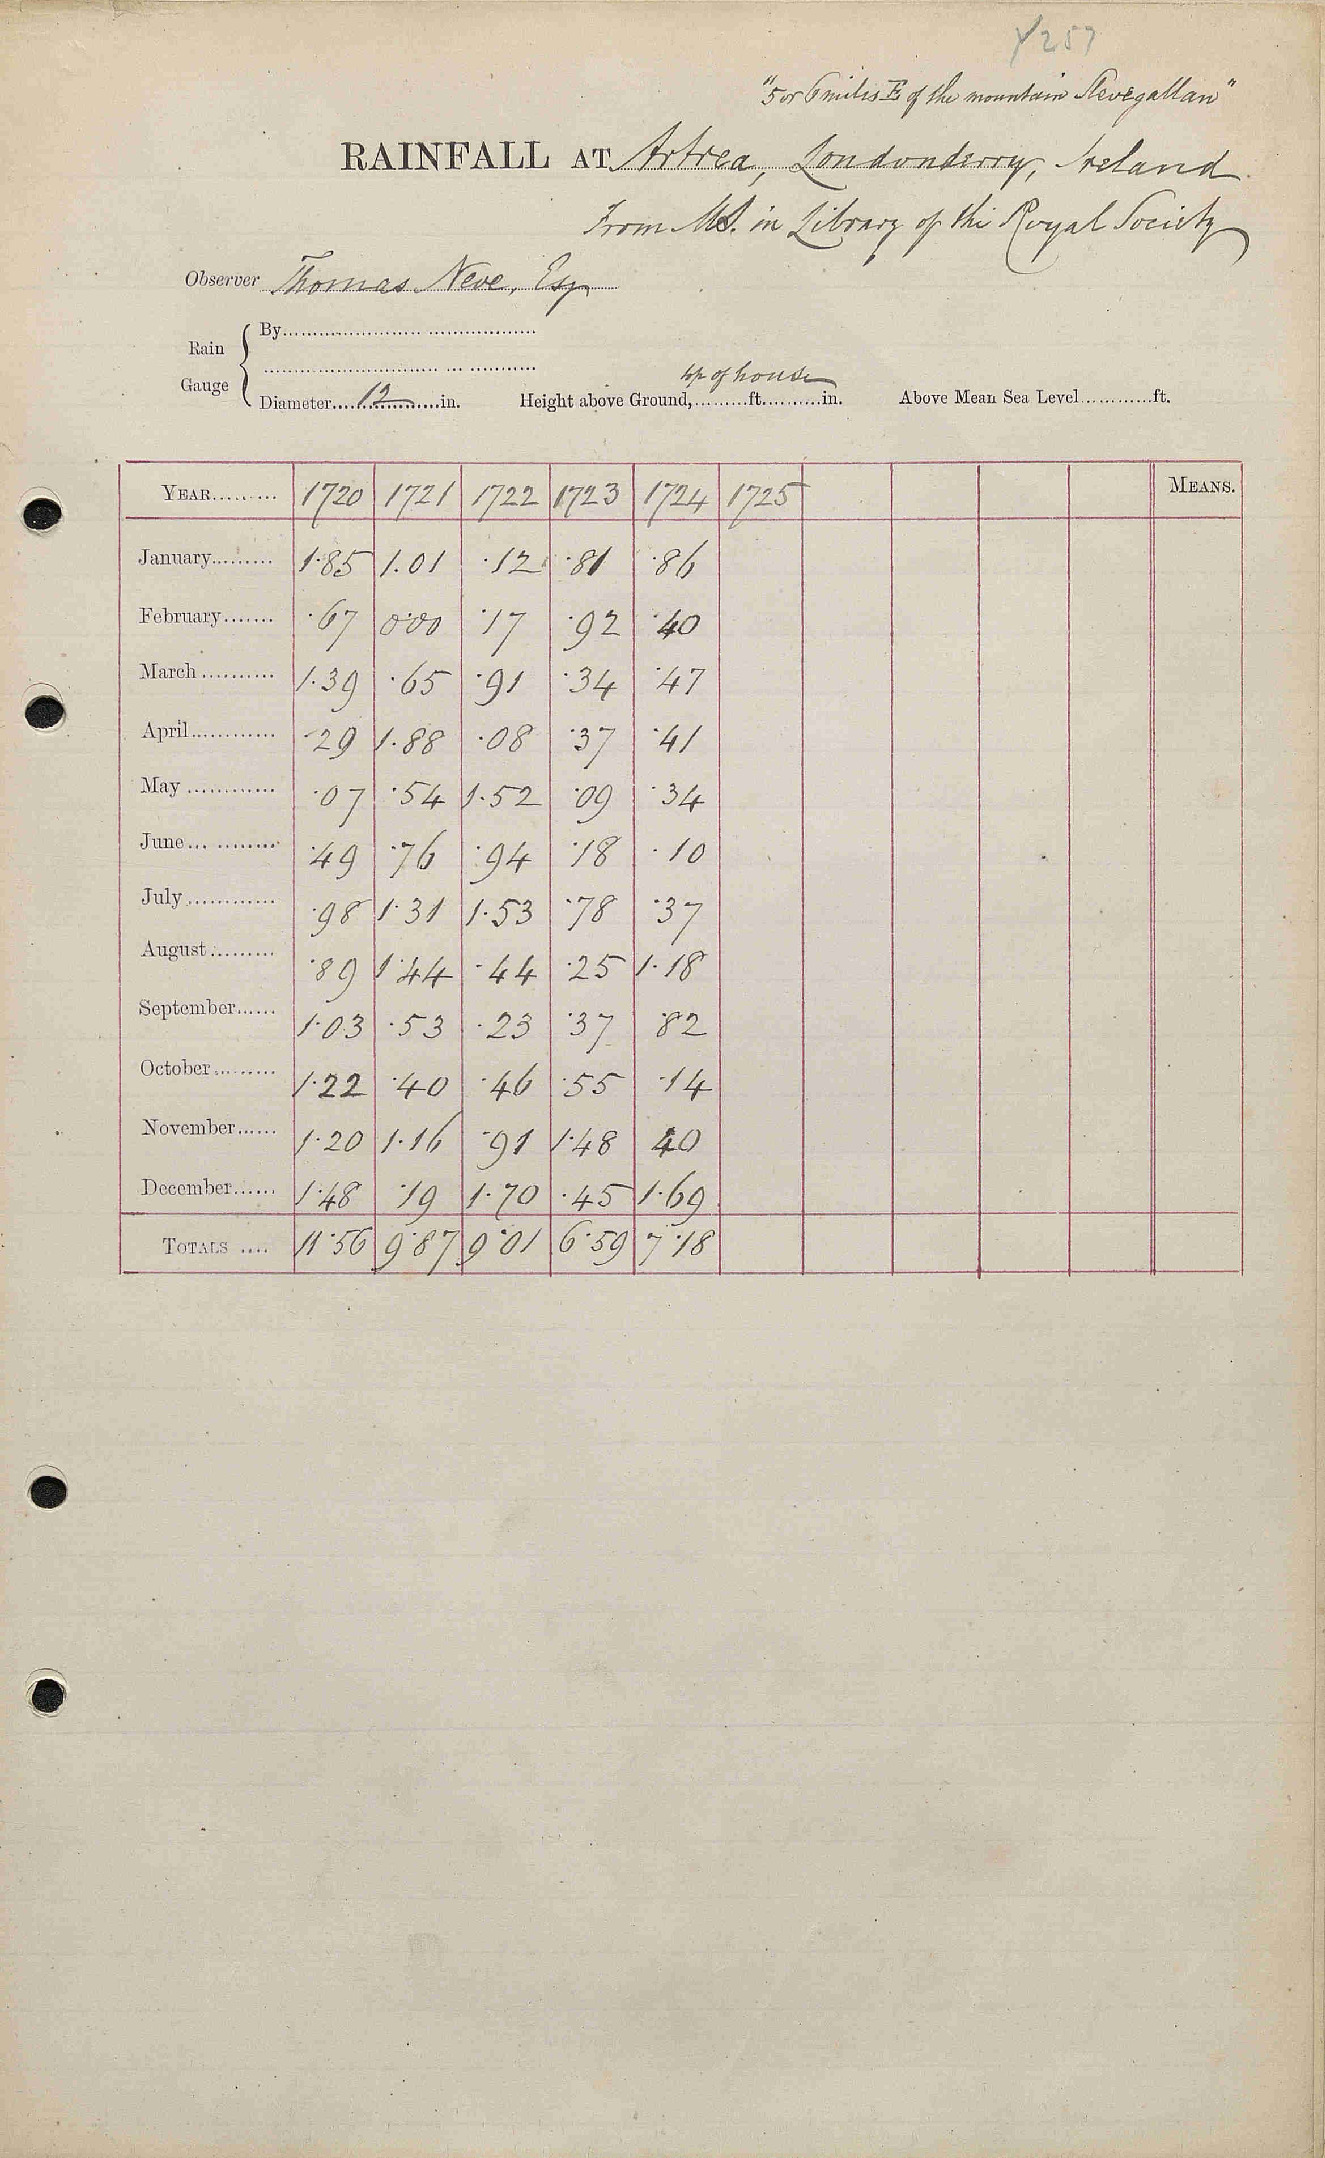 Y257
"5 or 6 miles E of the mountain Slevegallan"
RAINFALL AT Artrea, Londonderry, Ireland
From MS. in Library of the Royal Society
Observer Thomas Neve, Esq
Rain Gauge
By
Diameter 12 in. Height above Ground, top of house ft. in. Above Mean Sea Level ft.
YEAR 1720 1721 1722 1723 1724 1725 MEANS.
January 1.85 1.01 .12 .81 .86
February .67 0.00 .17 .92 .40
March 1.39 .65 .91 .34 .47
April .29 1.88 .08 .37 .41
May .07 .54 1.52 .09 .34
June .49 .76 .94 .18 .10
July .98 1.31 1.53 .78 .37
August .89 1.44 .44 .25 1.18
September 1.03 .53 .23 .37 .82
October 1.22 .40 .46 .55 .14
November 1.20 1.16 .91 1.48 40
December 1.48 .19 1.70 .45 1.69
TOTALS 11.56 9.87 9.01 6.59 7.18